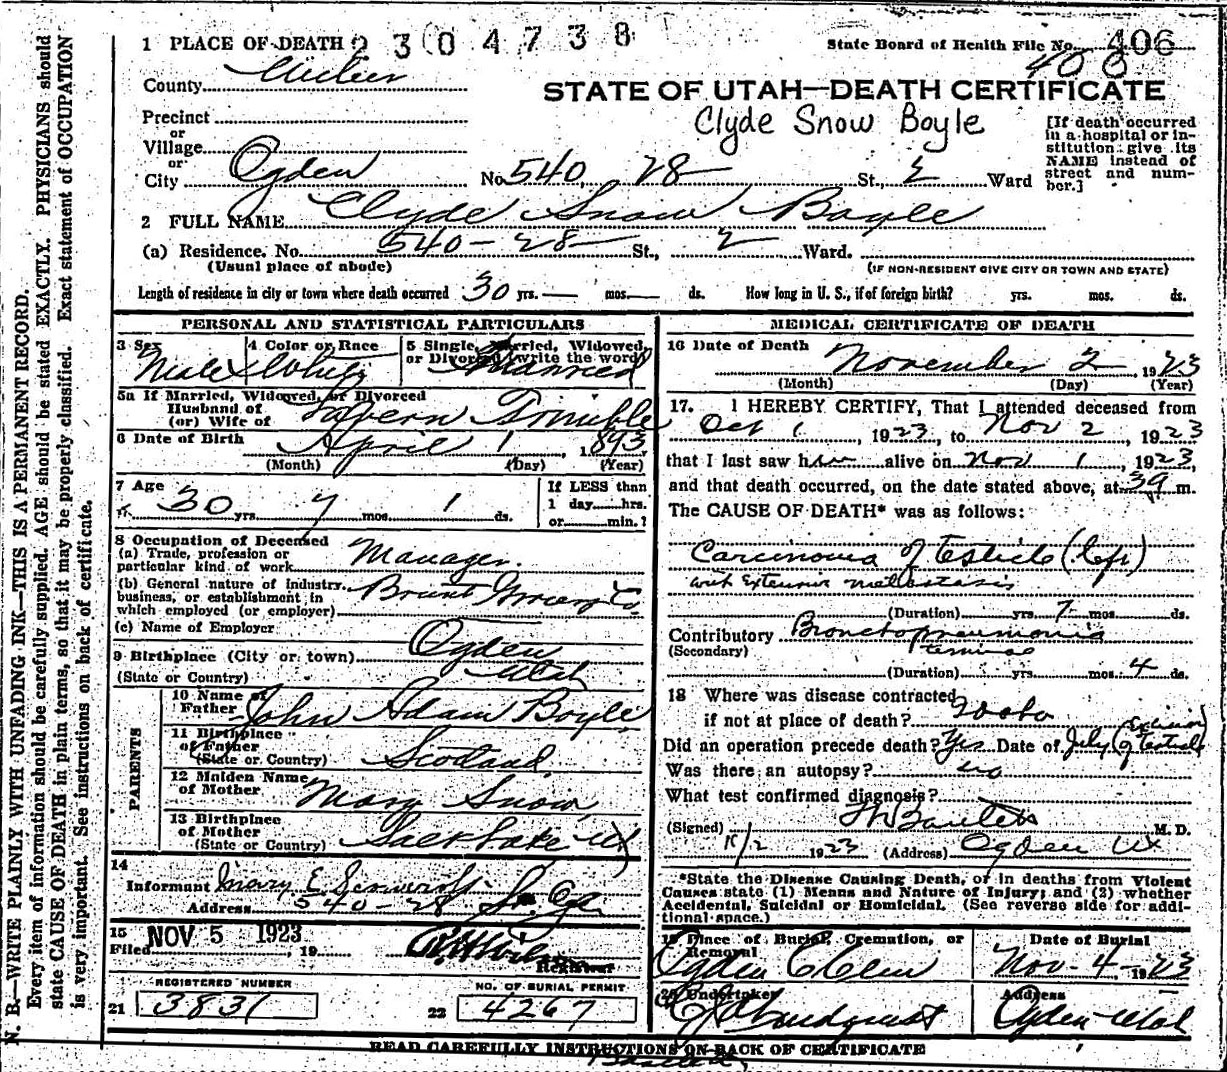 1 PLACE OF DEATH 2304738 State Board of Health File No. 406
400
County Weber
STATE OF UTAH—DEATH CERTIFICATE
Precinct
Clyde Snow Boyle
[If death occurred in a hospital or institution give its NAME instead of street and number.]
or
Village
or
City Ogden No. 540, 28 St., 2 Ward
2 FULL NAME Clyde Snow Boyle
(a) Residence. No. 540-28 St., 2 Ward.
(Usual place of abode) (IF NON-RESIDENT GIVE CITY OR TOWN AND STATE)
Length of residence in city or town where death occurred 30 yrs. — mos. — ds. How long in U. S., if of foreign birth? yrs. mos. ds.
PERSONAL AND STATISTICAL PARTICULARS
3 Sex Male
4 Color or Race White
5 Single, Married, Widowed, or Divorced (write the word) Married
5a If Married, Widowed, or Divorced
Husband of
(or) Wife of Lavern Trimble
6 Date of Birth April 1, 1893
(Month) (Day) (Year)
7 Age 30 yrs. 7 mos. 1 ds.
If LESS than 1 day hrs. or min.?
8 Occupation of Deceased
(a) Trade, profession or particular kind of work Manager.
(b) General nature of industry, business, or establishment in which employed (or employer) Co.
(c) Name of Employer
9 Birthplace (City or town) Ogden
(State or Country) Utah
PARENTS
10 Name of Father John Adam Boyle
11 Birthplace of Father (State or Country) Scotland
12 Maiden Name of Mother Mary Snow
13 Birthplace of Mother (State or Country) Salt Lake Ut
14
Informant Mary E.
Address 540-28 St. Ogden
15
Filed NOV 5 1923, 19
Registrar
REGISTERED NUMBER
21 3831
NO. OF BURIAL PERMIT
22 4267
MEDICAL CERTIFICATE OF DEATH
16 Date of Death November 2, 1923
(Month) (Day) (Year)
17. I HEREBY CERTIFY, That I attended deceased from
Oct 1, 1923, to Nov 2, 1923
that I last saw him alive on Nov 1, 1923,
and that death occurred, on the date stated above, at m.
The CAUSE OF DEATH* was as follows:
Carcinoma of Testicle (left)
with Extensive metastasis
(Duration) yrs. 7 mos. ds.
Contributory Bronchopneumonia
(Secondary) terminal
(Duration) yrs. mos. 4 ds.
18 Where was disease contracted
if not at place of death? Idaho
Did an operation precede death? Yes Date of July (Excision of testicle)
Was there an autopsy? no
What test confirmed diagnosis?
(Signed) M. D.
11/2 1923 (Address) Ogden Ut
*State the Disease Causing Death, or in deaths from Violent Causes state (1) Means and Nature of Injury; and (2) whether Accidental, Suicidal or Homicidal. (See reverse side for additional space.)
19 Place of Burial, Cremation, or Removal
Ogden Cem
Date of Burial
Nov-4-1923
20 Undertaker
Lindquist
Address
Ogden Utah
READ CAREFULLY INSTRUCTIONS ON BACK OF CERTIFICATE
N. B.—WRITE PLAINLY WITH UNFADING INK—THIS IS A PERMANENT RECORD.
Every item of information should be carefully supplied. AGE should be stated EXACTLY. PHYSICIANS should
state CAUSE OF DEATH in plain terms, so that it may be properly classified. Exact statement of OCCUPATION
is very important. See instructions on back of certificate.